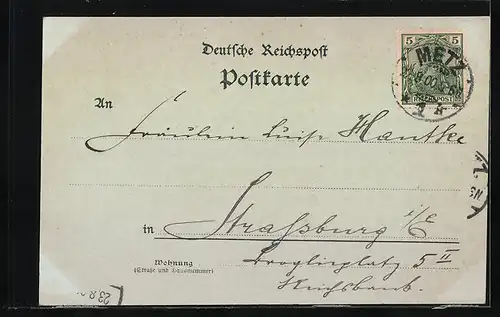 5 5
METZ
Deutsche Reichspost
Postkarte
REICHSPOST
An
Fräulein Luise Mantke
in Straßburg i/E
Broglieplatz 5 II
Wohnung
(Straße und Hausnummer)
Reichsbank.
23.8.